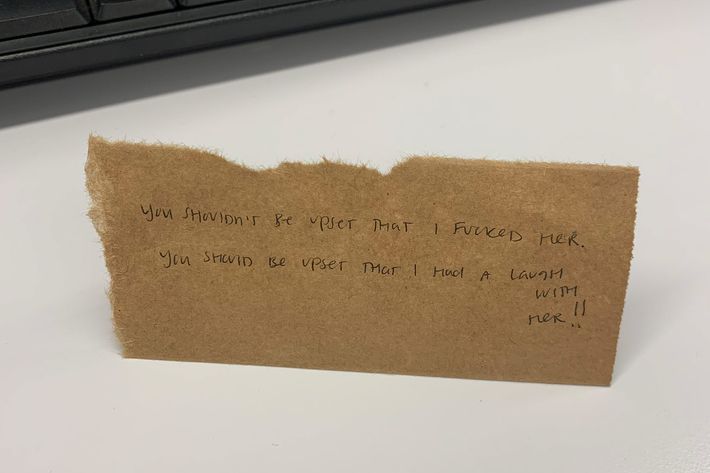 You shouldn't be upset that I fucked her.
You should be upset that I had a laugh
with
her!!